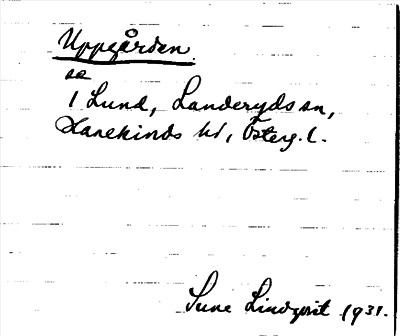 Uppgården
se
1 Lund, Landeryds sn,
Hanekinds hd, Österg. l.
Sune Lindqvist 1931.